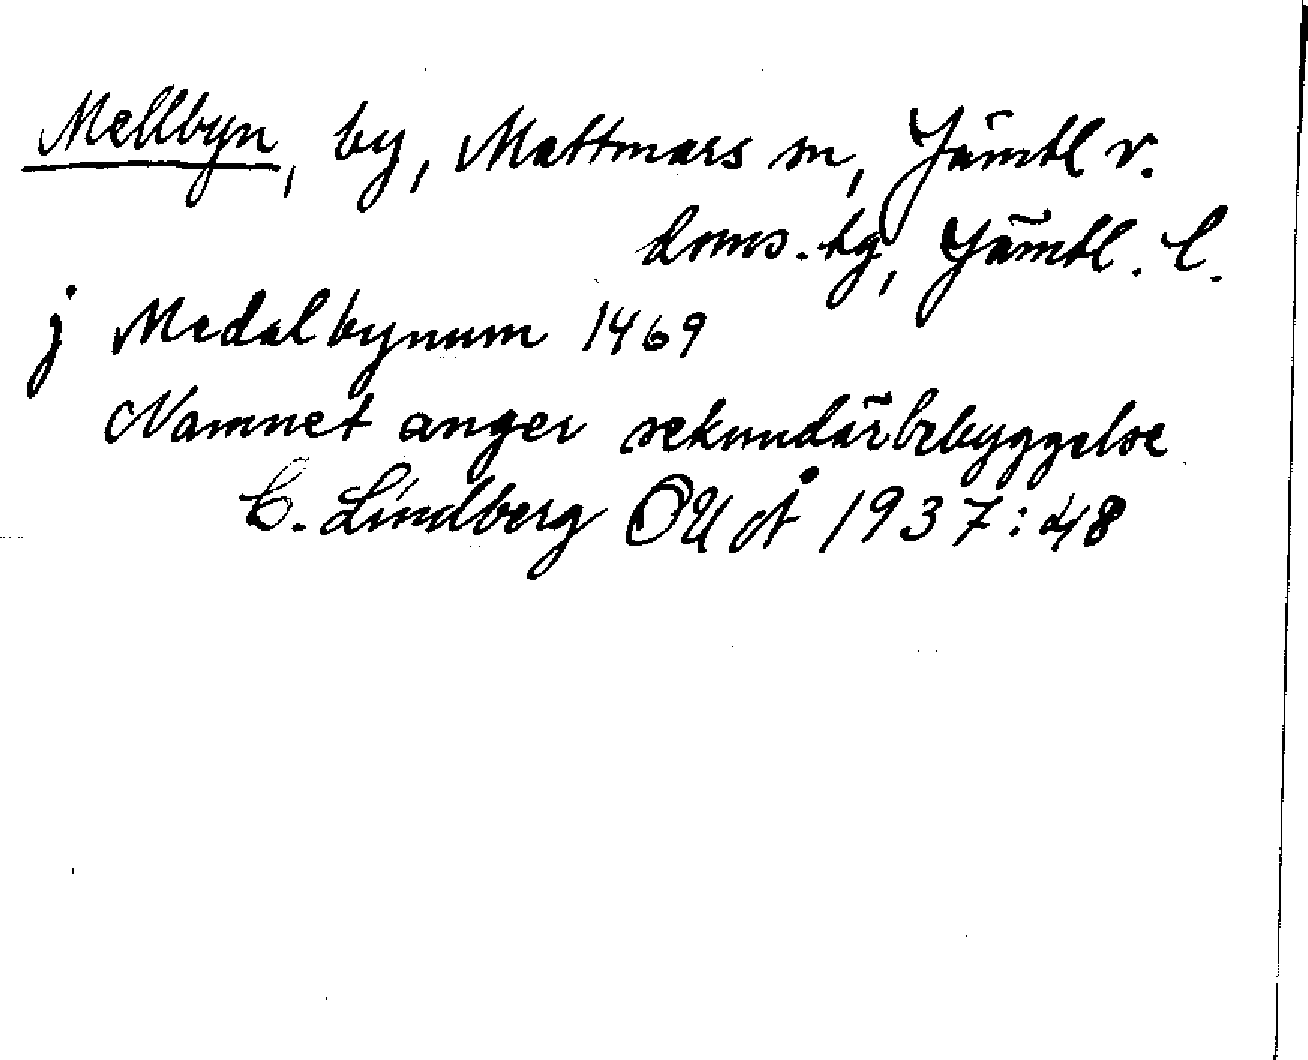 Mellbyn, by, Mattmars sn, Jämtl v.
doms.tg, Jämtl. l.
j Medalbynum 1469
Namnet anger sekundärbebyggelse
C. Lindberg OUÅ 1937:48